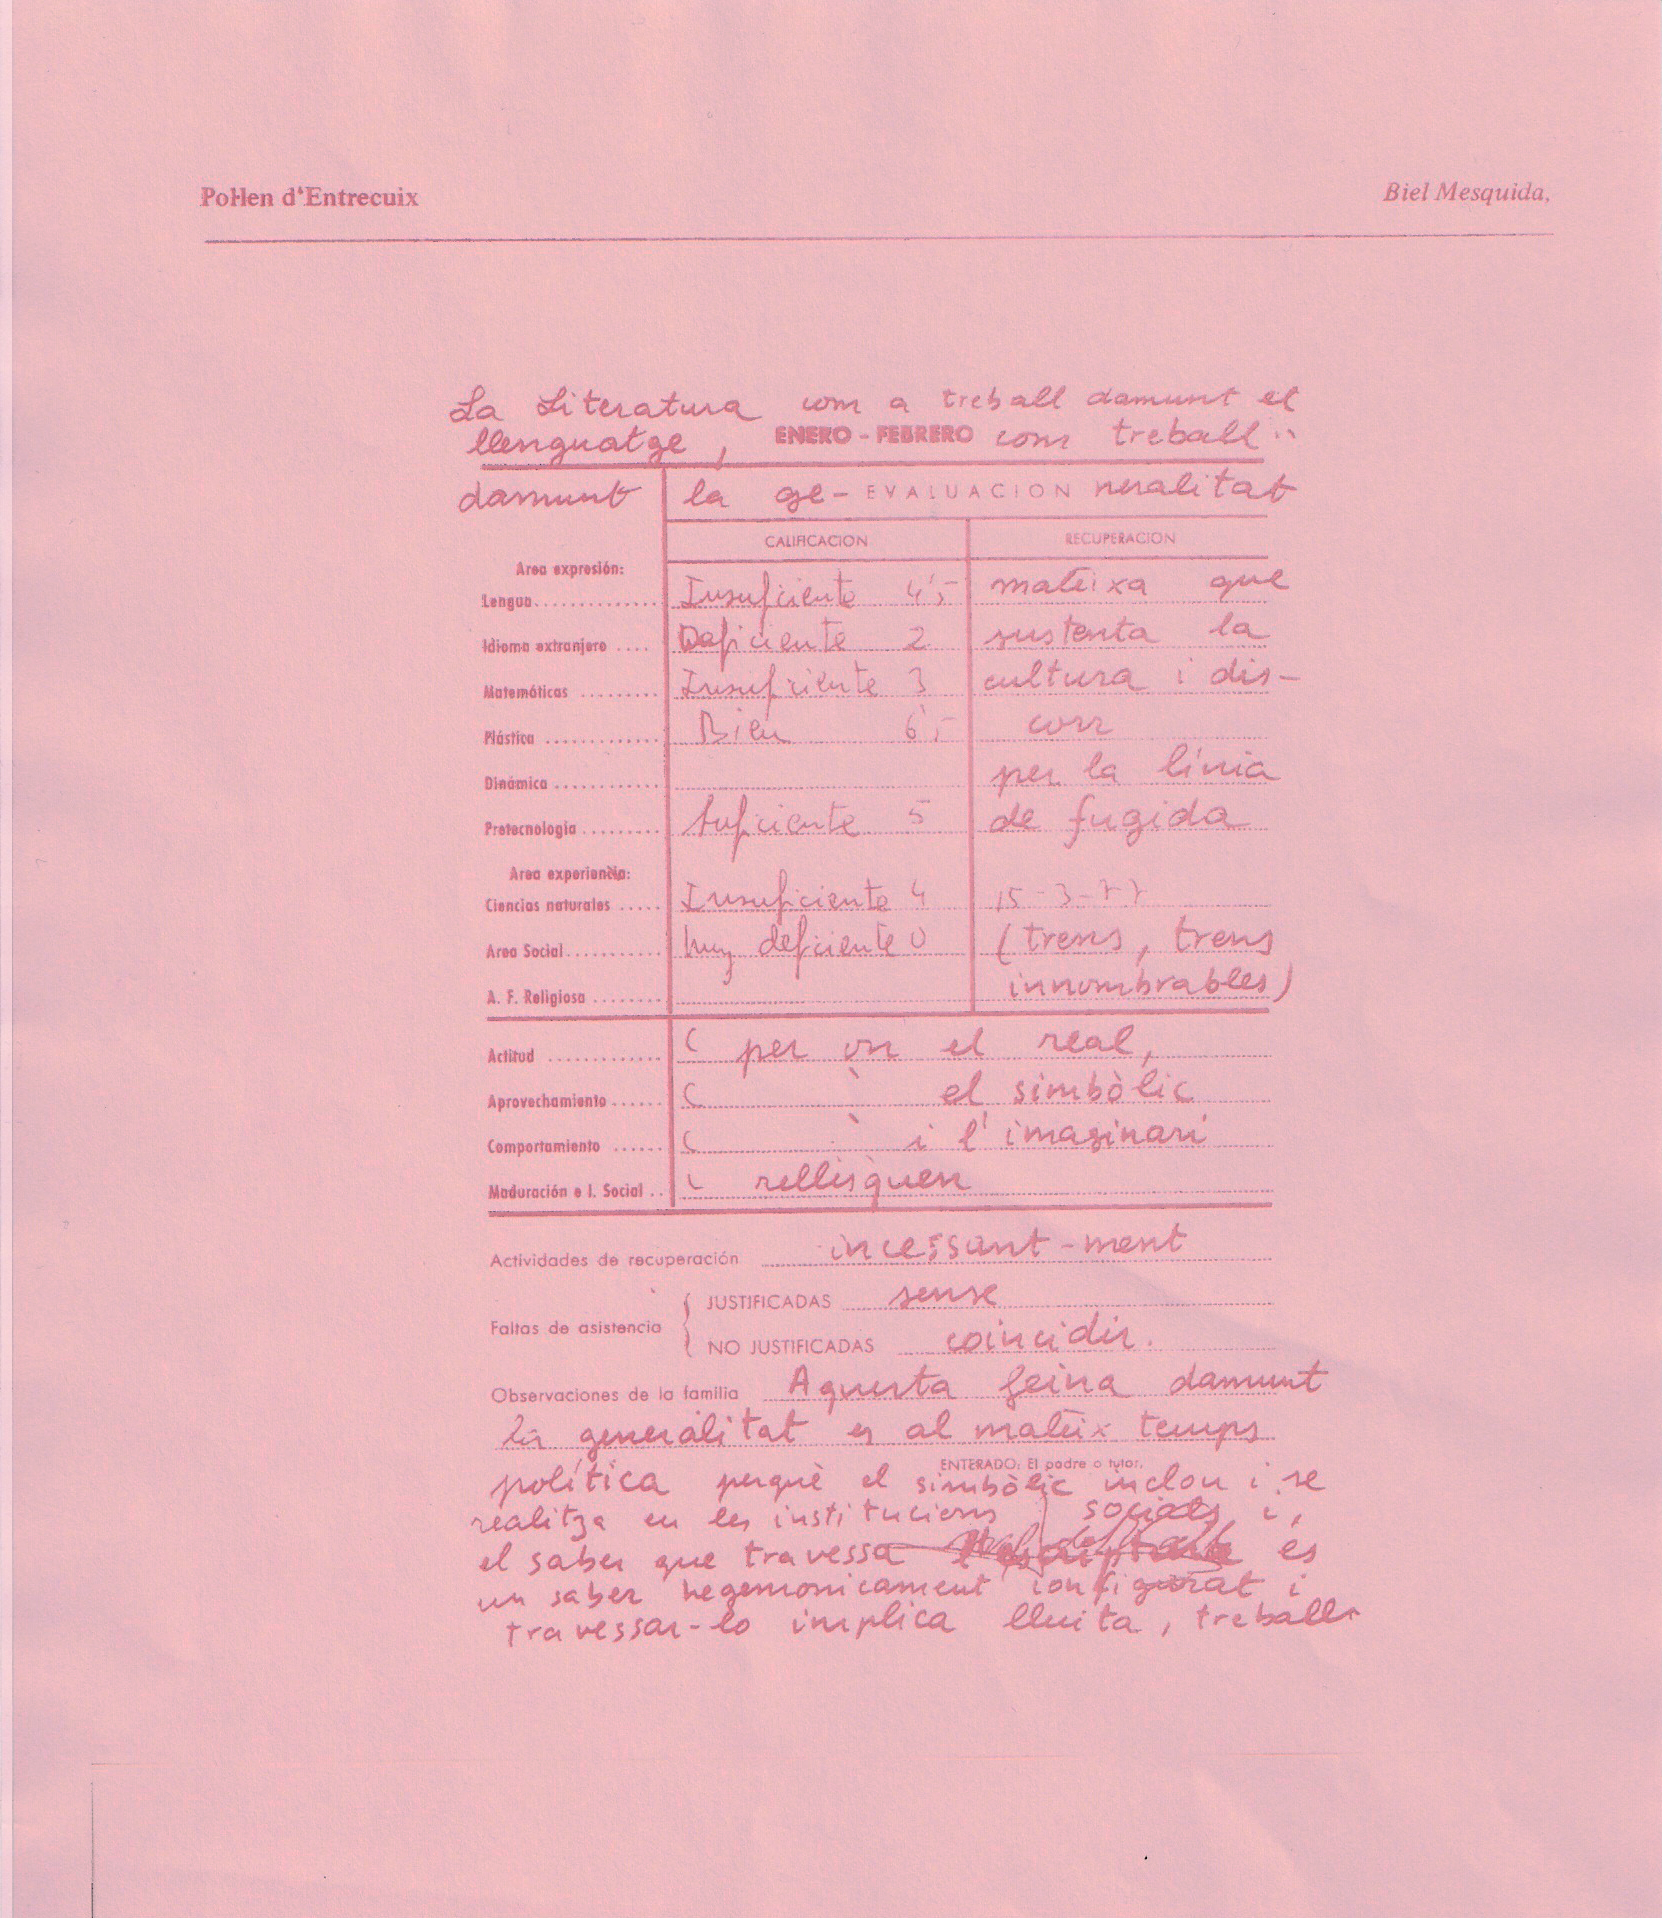 Pol·len d'Entrecuix
Biel Mesquida,
La Literatura com a treball damunt el
llenguatge, ENERO - FEBRERO com treball
damunt la ge- EVALUACION neralitat
CALIFICACION RECUPERACION
Area expresión:
Lengua............. Insuficiente 4'5 mateixa que
Idioma extranjero .... Deficiente 2 sustenta la
Matemáticas ........ Insuficiente 3 cultura i dis-
Plástica ............ Bien 6'5 corr
Dinámica ........... per la línia
Pretecnología ........ Suficiente 5 de fugida
Area experiencia:
Ciencias naturales ..... Insuficiente 4 15-3-77
Area Social.......... Muy deficiente 0 (trens, trens
A. F. Religiosa ........ innombrables)
Actitud ............ ( per on el real,
Aprovechamiento ...... ( el simbòlic
Comportamiento ...... ( i l'imaginari
Maduración e I. Social .. ( rellisquen
Actividades de recuperación incessant-ment
Faltas de asistencia { JUSTIFICADAS sense
NO JUSTIFICADAS coincidir.
Observaciones de la familia Aquesta feina damunt
la generalitat es al mateix temps
ENTERADO: El padre o tutor,
política perquè el simbòlic inclou i se
realitza en les institucions socials i,
el saber que travessa es
un saber hegemonicament configurat i
travessar-lo implica lluita, treball